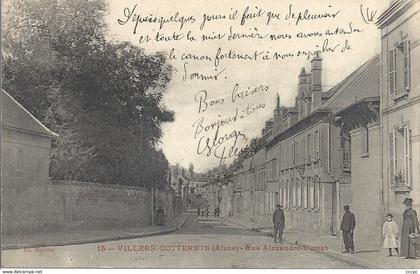 Depuis quelques jours il fait que de pleuvoir
et toute la nuit dernière nous avons entendu
le canon fortement à nous empêcher de
dormir.
Bons baisers
Bonjour à tous
Georges
15 - VILLERS-COTTERETS (Aisne) - Rue Alexandre Dumas